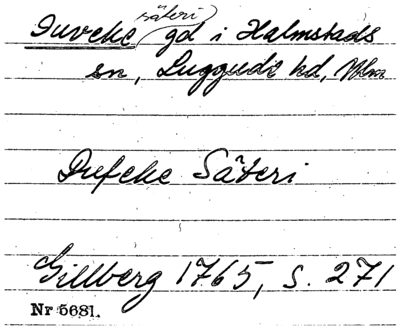 säteri
Duveke gd i Halmstads
sn, Luggude hd, Mlm
Dufeke Säteri
Gillberg 1765, s. 271
Nr 5681.